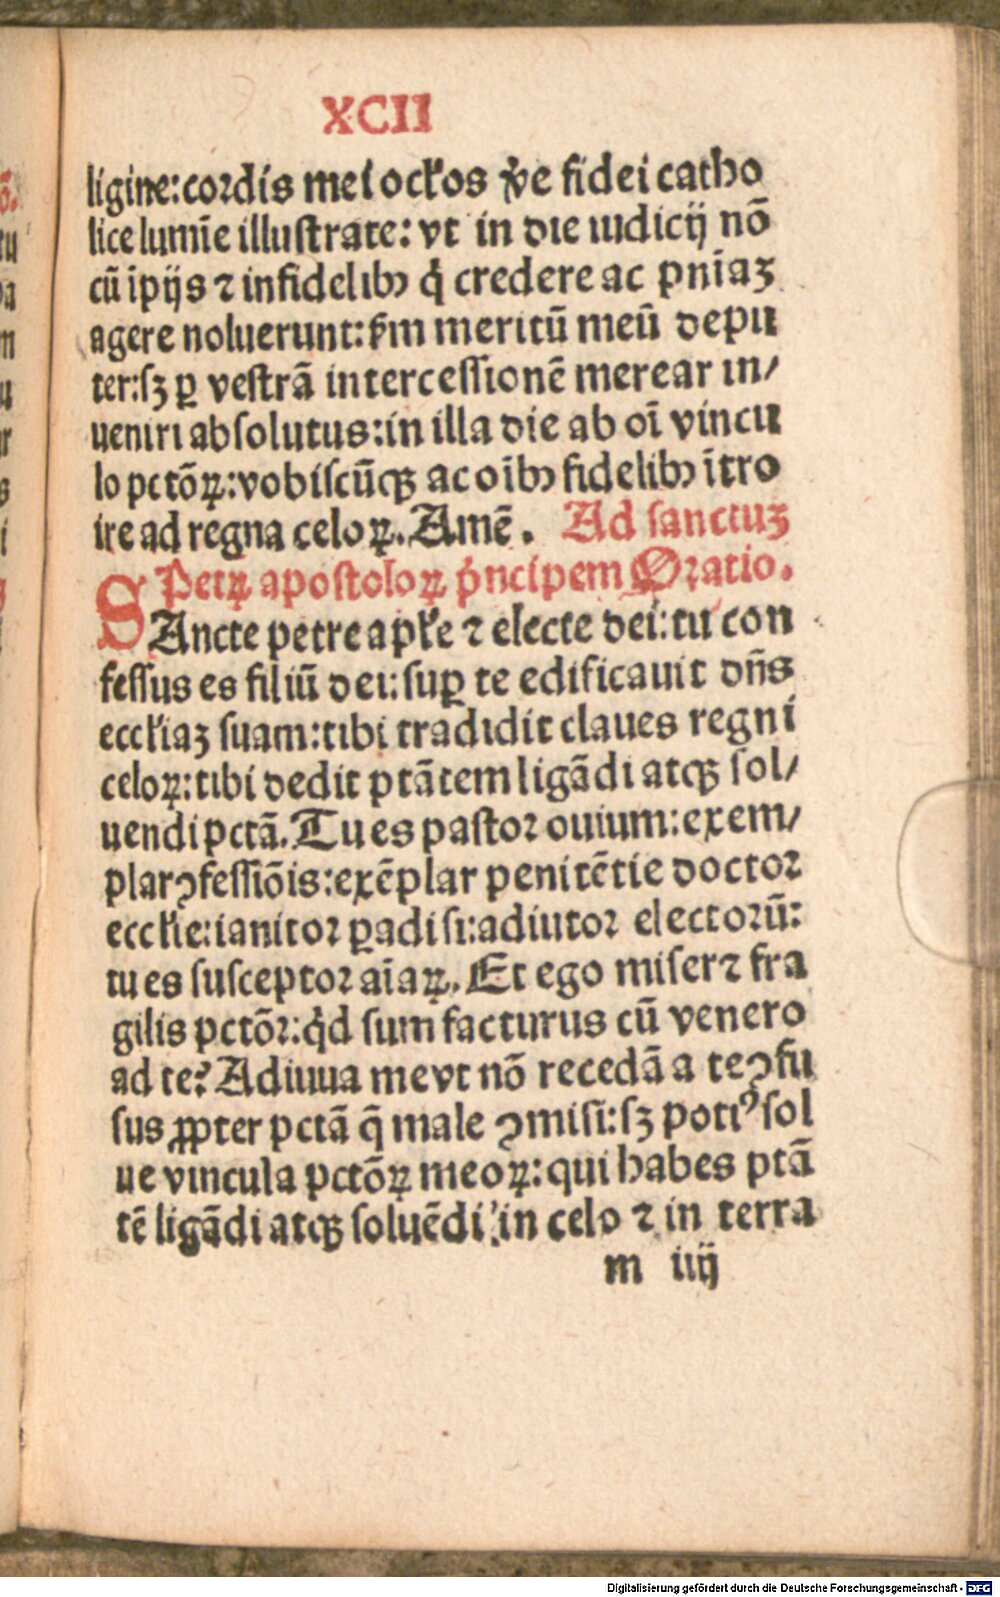 XCII
ligine: cordis mei ocłos v̾e fidei catho
lice lumīe illustrate: vt in die iudicij nō
cū īpijs ⁊ infidelibꝰ q̇ credere ac pnīaꝫ
agere noluerunt: ẜm meritū meū depu
ter: sꝫ ꝑ vestrā intercessionē merear in/
ueniri absolutus: in illa die ab oī vincu
lo pctōꝝ: vobiscūqꝫ ac oībꝰ fidelibꝰ ītro
ire ad regna celoꝝ. Amē. Ad sanctuꝫ
Petrꝝ apostoloꝝ pͥncipem Oratio.
SAncte petre apłe ⁊ electe dei: tu con
fessus es filiū dei: suꝑ te edificauit dn̄s
eccłiaꝫ suam: tibi tradidit claues regni
celoꝝ: tibi dedit ptātem ligādi atqꝫ sol/
uendi pctā. Tu es pastor ouium: exem/
plar ꝯfessiōis: exēplar penitētie doctor
eccłie: ianitor ꝑadisi: adiutor electorū:
tu es susceptor aīaꝝ. Et ego miser ⁊ fra
gilis pctōr: qͥd sum facturus cū venero
ad te? Adiuua me vt nō recedā a te ꝯfu
sus ꝓpter pctā q̄ male ꝯmisi: sꝫ potiꝰ sol
ue vincula pctōꝝ meoꝝ: qui habes ptā
tē ligādi atqꝫ soluēdi in celo ⁊ in terra
m iiij
Digitalisierung gefördert durch die Deutsche Forschungsgemeinschaft - DFG